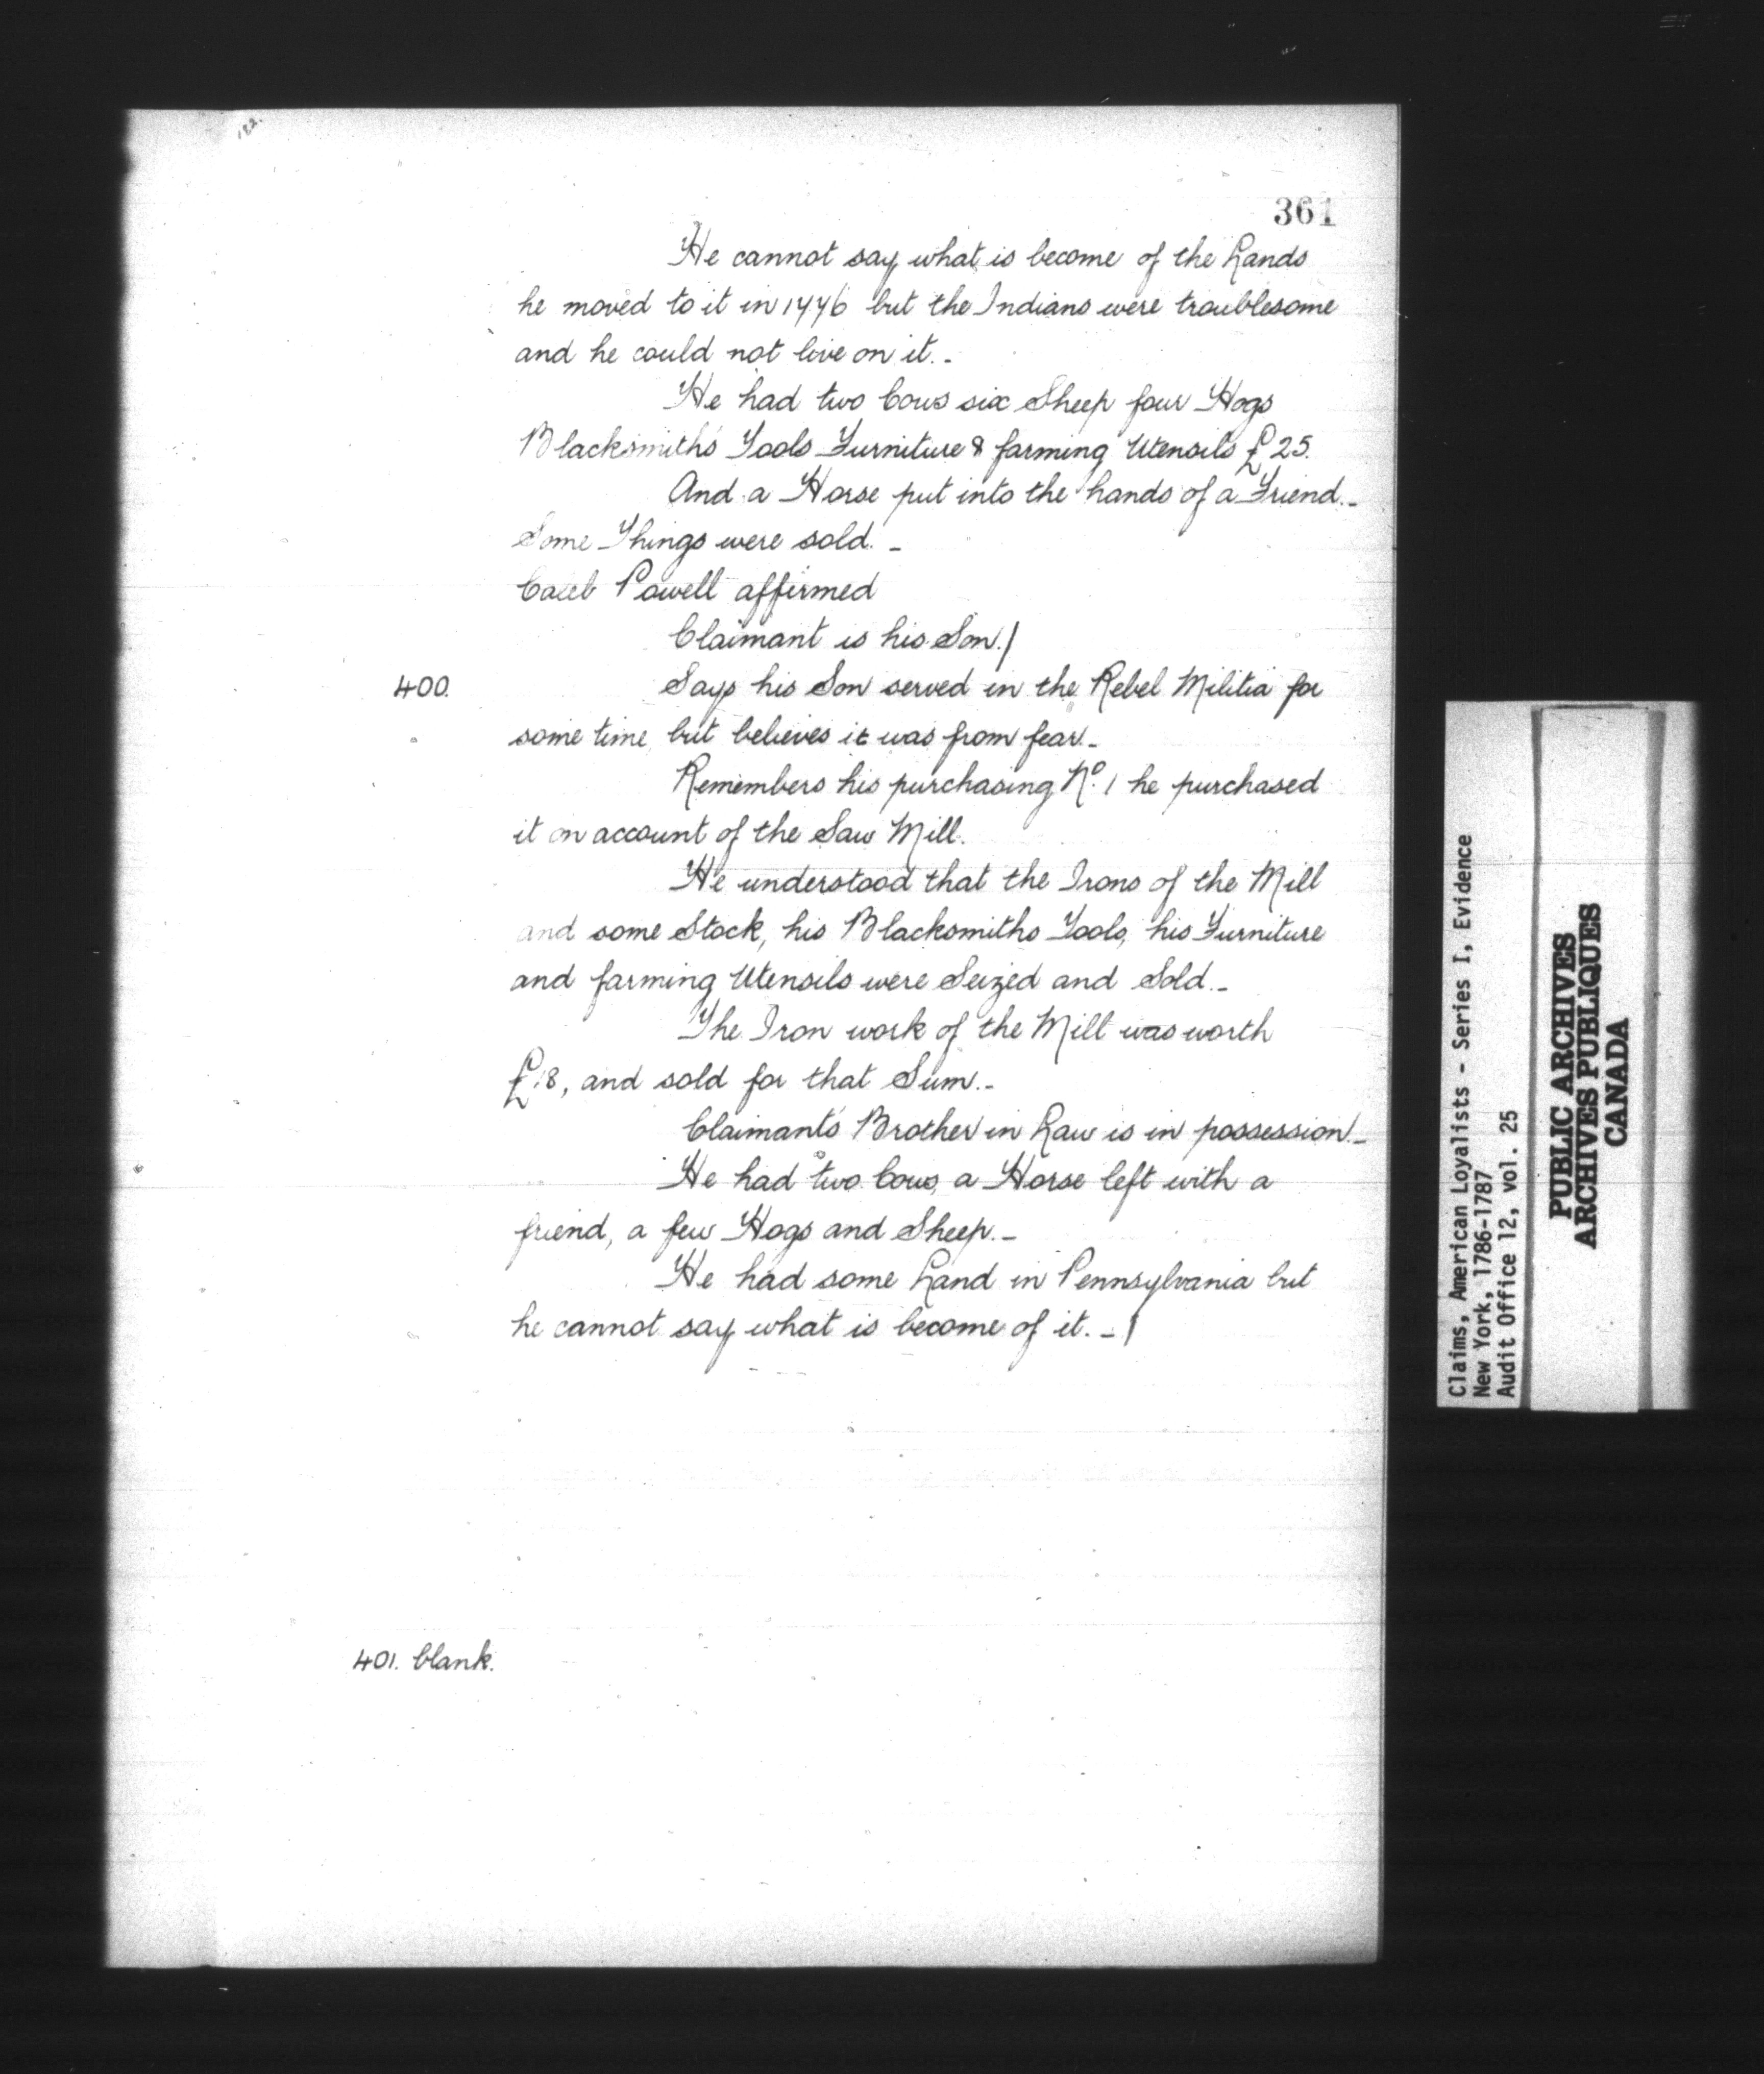 182.
361
He cannot say what is become of the Lands
he moved to it in 1776 but the Indians were troublesome
and he could not live on it. -
He had two Cows six Sheep four Hogs
Blacksmith's Tools Furniture & farming Utensils £25.
And a Horse put into the hands of a Friend. -
Some Things were sold. -
Caleb Powell affirmed
Claimant is his Son./
400. Says his Son served in the Rebel Militia for
some time but believes it was from fear. -
Remembers his purchasing No. 1 he purchased
it on account of the Saw Mill.
He understood that the Irons of the Mill
and some Stock, his Blacksmiths Tools, his Furniture
and farming Utensils were Seized and Sold. -
The Iron work of the Mill was worth
£18, and sold for that Sum. -
Claimant's Brother in Law is in possession. -
He had two Cows, a Horse left with a
friend, a few Hogs and Sheep. -
He had some Land in Pennsylvania but
he cannot say what is become of it. - /
401. blank.
Claims, American Loyalists - Series I, Evidence
New York, 1786-1787
Audit Office 12, vol. 25
PUBLIC ARCHIVES
ARCHIVES PUBLIQUES
CANADA